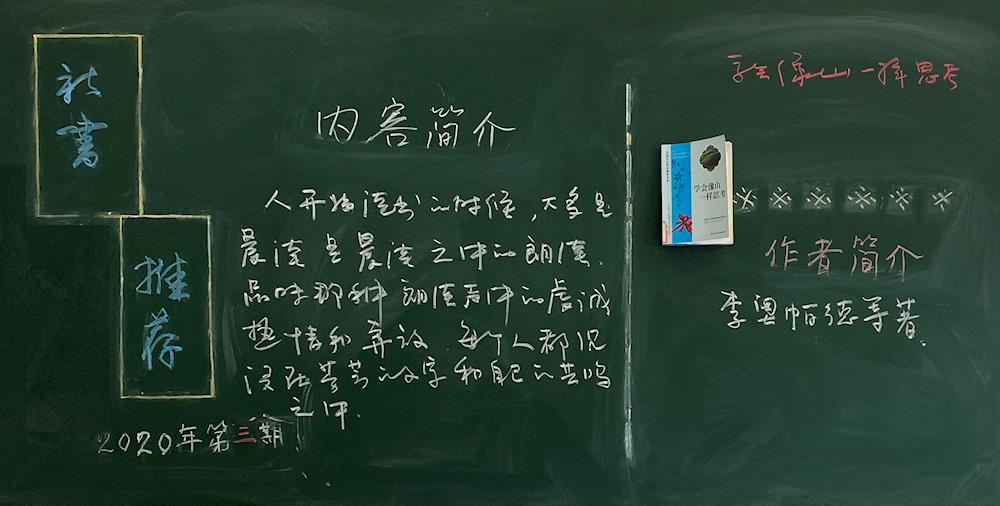 社書
推荐
2020年第三期
内容简介
人开始读书的时候,大多是
晨读是晨读之中的朗读.
品味那种朗读声中的虔诚
热情和奔放.每个人都沉
浸在芬芳的文字和自己的共鸣
之中.
学会像山一样思考
学会像山
一样思考
作者简介
李奥帕德等著.